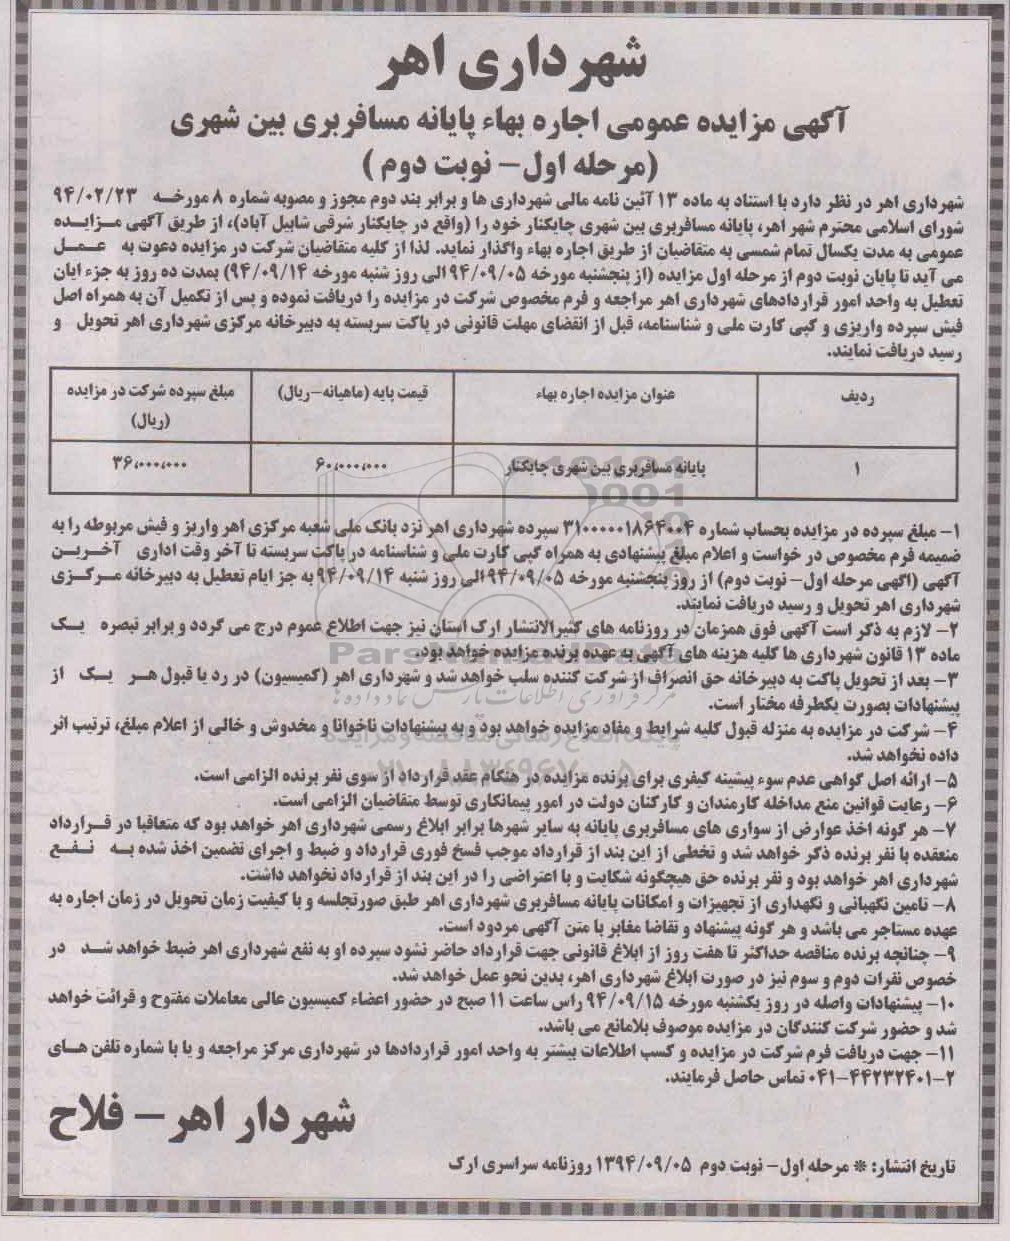 شهرداری اهر
آگهی مزایده عمومی اجاره بهاء پایانه مسافربری بین شهری
(مرحله اول- نوبت دوم )
شهرداری اهر در نظر دارد با استناد به ماده ۱۳ آئین نامه مالی شهرداری ها و برابر بند دوم مجوز و مصوبه شماره ۸ مورخه ۹۴/۰۲/۲۳
شورای اسلامی محترم شهر اهر، پایانه مسافربری بین شهری چایکنار خود را (واقع در چایکنار شرقی شابیل آباد)، از طریق آگهی مزایده
عمومی به مدت یکسال تمام شمسی به متقاضیان از طریق اجاره بهاء واگذار نماید. لذا از کلیه متقاضیان شرکت در مزایده دعوت به عمل
می آید تا پایان نوبت دوم از مرحله اول مزایده (از پنجشنبه مورخه ۹۴/۰۹/۰۵ الی روز شنبه مورخه ۹۴/۰۹/۱۴) بمدت ده روز به جزء ایان
تعطیل به واحد امور قراردادهای شهرداری اهر مراجعه و فرم مخصوص شرکت در مزایده را دریافت نموده و پس از تکمیل آن به همراه اصل
فیش سپرده واریزی و کپی کارت ملی و شناسنامه، قبل از انقضای مهلت قانونی در پاکت سربسته به دبیرخانه مرکزی شهرداری اهر تحویل و
رسید دریافت نمایند.
ردیف عنوان مزایده اجاره بهاء قیمت پایه (ماهیانه-ریال) مبلغ سپرده شرکت در مزایده
(ریال)
۱ پایانه مسافربری بین شهری چایکنار ۶۰،۰۰۰،۰۰۰ ۳۶،۰۰۰،۰۰۰
۱- مبلغ سپرده در مزایده بحساب شماره ۳۱۰۰۰۰۰۱۸۶۴۰۰۴ سپرده شهرداری اهر نزد بانک ملی شعبه مرکزی اهر واریز و فیش مربوطه را به
ضمیمه فرم مخصوص در خواست و اعلام مبلغ پیشنهادی به همراه کپی کارت ملی و شناسنامه در پاکت سربسته تا آخر وقت اداری آخرین
آگهی (اگهی مرحله اول- نوبت دوم) از روز پنجشنبه مورخه ۹۴/۰۹/۰۵ الی روز شنبه ۹۴/۰۹/۱۴ به جز ایام تعطیل به دبیرخانه مرکزی
شهرداری اهر تحویل و رسید دریافت نمایند.
۲- لازم به ذکر است آگهی فوق همزمان در روزنامه های کثیرالانتشار ارک استان نیز جهت اطلاع عموم درج می گردد و برابر تبصره یک
ماده ۱۳ قانون شهرداری ها کلیه هزینه های آگهی به عهده برنده مزایده خواهد بود.
۳- بعد از تحویل پاکت به دبیرخانه حق انصراف از شرکت کننده سلب خواهد شد و شهرداری اهر (کمیسیون) در رد یا قبول هر یک از
پیشنهادات بصورت یکطرفه مختار است.
۴- شرکت در مزایده به منزله قبول کلیه شرایط و مفاد مزایده خواهد بود و به پیشنهادات ناخوانا و مخدوش و خالی از اعلام مبلغ، ترتیب اثر
داده نخواهد شد.
۵- ارائه اصل گواهی عدم سوء پیشینه کیفری برای برنده مزایده در هنگام عقد قرارداد از سوی نفر برنده الزامی است.
۶- رعایت قوانین منع مداخله کارمندان و کارکنان دولت در امور پیمانکاری توسط متقاضیان الزامی است.
۷- هر گونه اخذ عوارض از سواری های مسافربری پایانه به سایر شهرها برابر ابلاغ رسمی شهرداری اهر خواهد بود که متعاقبا در قرارداد
منعقده با نفر برنده ذکر خواهد شد و تخطی از این بند از قرارداد موجب فسخ فوری قرارداد و ضبط و اجرای تضمین اخذ شده به نفع
شهرداری اهر خواهد بود و نفر برنده حق هیچگونه شکایت و یا اعتراضی را در این بند از قرارداد نخواهد داشت.
۸- تامین نگهبانی و نگهداری از تجهیزات و امکانات پایانه مسافربری شهرداری اهر طبق صورتجلسه و با کیفیت زمان تحویل در زمان اجاره به
عهده مستاجر می باشد و هر گونه پیشنهاد و تقاضا مغایر با متن آگهی مردود است.
۹- چنانچه برنده مناقصه حداکثر تا هفت روز از ابلاغ قانونی جهت قرارداد حاضر نشود سپرده او به نفع شهرداری اهر ضبط خواهد شد در
خصوص نفرات دوم و سوم نیز در صورت ابلاغ شهرداری اهر، بدین نحو عمل خواهد شد.
۱۰- پیشنهادات واصله در روز یکشنبه مورخه ۹۴/۰۹/۱۵ راس ساعت ۱۱ صبح در حضور اعضاء کمیسیون عالی معاملات مفتوح و قرائت خواهد
شد و حضور شرکت کنندگان در مزایده موصوف بلامانع می باشد.
۱۱- جهت دریافت فرم شرکت در مزایده و کسب اطلاعات بیشتر به واحد امور قراردادها در شهرداری مرکز مراجعه و یا با شماره تلفن های
۰۴۱-۴۴۲۳۲۴۰۱-۲ تماس حاصل فرمایند.
شهردار اهر - فلاح
تاریخ انتشار: * مرحله اول- نوبت دوم ۱۳۹۴/۰۹/۰۵ روزنامه سراسری ارک